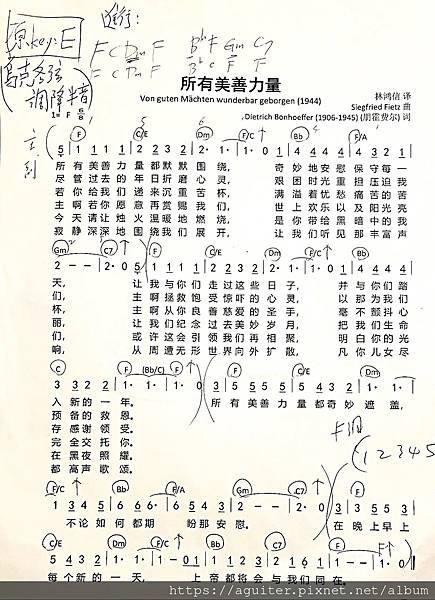 原key: E
進行:
F C Dm F Bb F Gm C7
F C Dm F Bb C F F
烏克麗弦
調降半音
1= F
所有美善力量
Von guten Mächten wunderbar geborgen (1944)
林鸿信 译
Siegfried Fietz 曲
, Dietrich Bonhoeffer (1906-1945) (朋霍费尔) 词
主列
F C/E Dm F/C Bb
5 1 1 1 2 3 2 5 4 3 2 2 1 · 1 · 0 1 4 4 4 4
所 有 美 善 力 量 都 默 默 围 绕, 奇 妙 地 安 慰 保 守 每 一
尽 管 过 去 的 年 日 折 磨 心 灵, 艰 困 时 光 重 担 压 迫 我
若 你 给 我 们 递 来 沉 重 苦 杯, 满 溢 着 忧 愁 痛 苦 的 苦
主 啊 若 你 愿 意 再 赏 赐 我 们, 世 上 欢 乐 以 及 阳 光 亮
今 天 请 让 烛 火 温 暖 地 燃 烧, 是 你 带 给 黑 暗 中 的 我
寂 静 深 深 地 围 绕 我 们 展 开, 让 我 们 听 见 那 丰 富 声
Gm C7 F C/E Dm F/C Bb
2 - - 2 · 0 5 1 1 1 2 3 2 5 4 3 2 2 1 · 1 · 0 1 4 4 4 4
天, 让 我 与 你 们 走 过 这 些 日 子, 并 与 你 们 踏
们, 主 啊 拯 救 饱 受 惊 吓 的 心 灵, 以 那 为 我 们
杯, 主 啊 从 你 良 善 慈 爱 的 圣 手, 毫 不 颤 抖 心
丽, 让 我 们 纪 念 过 去 美 妙 岁 月, 把 我 们 生 命
们, 或 许 这 会 引 领 我 们 再 相 聚, 明 白 你 的 光
响, 从 周 遭 无 形 世 界 向 外 扩 散, 凡 你 儿 女 尽
C F (Bb/C) F F C/E Dm
3 3 2 2 1 · 1 · 1 · 1 · 0 3 5 5 5 5 5 4 3 2 1 · 1 ·
入 新 的 一 年。 所 有 美 善 力 量 都 奇 妙 遮 盖,
预 备 的 救 恩。
存 感 谢 领 受。
完 全 交 托 你。
在 黑 夜 照 耀。
都 高 声 歌 颂。
F調
(1 2 3 4 5
F/C Bb F/A Gm C7 F
1 3 4 5 6 6 6 5 5 4 3 2 · 2 · 0 3 3 5 5 3
不 论 如 何 都 期 盼 那 安 慰。 在 晚 上 早 上
C/E Dm F/C Bb F/A Gm C7 F F
5 5 4 3 2 1 · 1 - 0 1 1 2 3 2 1 6 1 2 3 2 1 1 - 1 · 0
每 个 新 的 一 天, 上 帝 都 将 会 与 我 们 同 在。
https://aguiter.pixnet.net/album